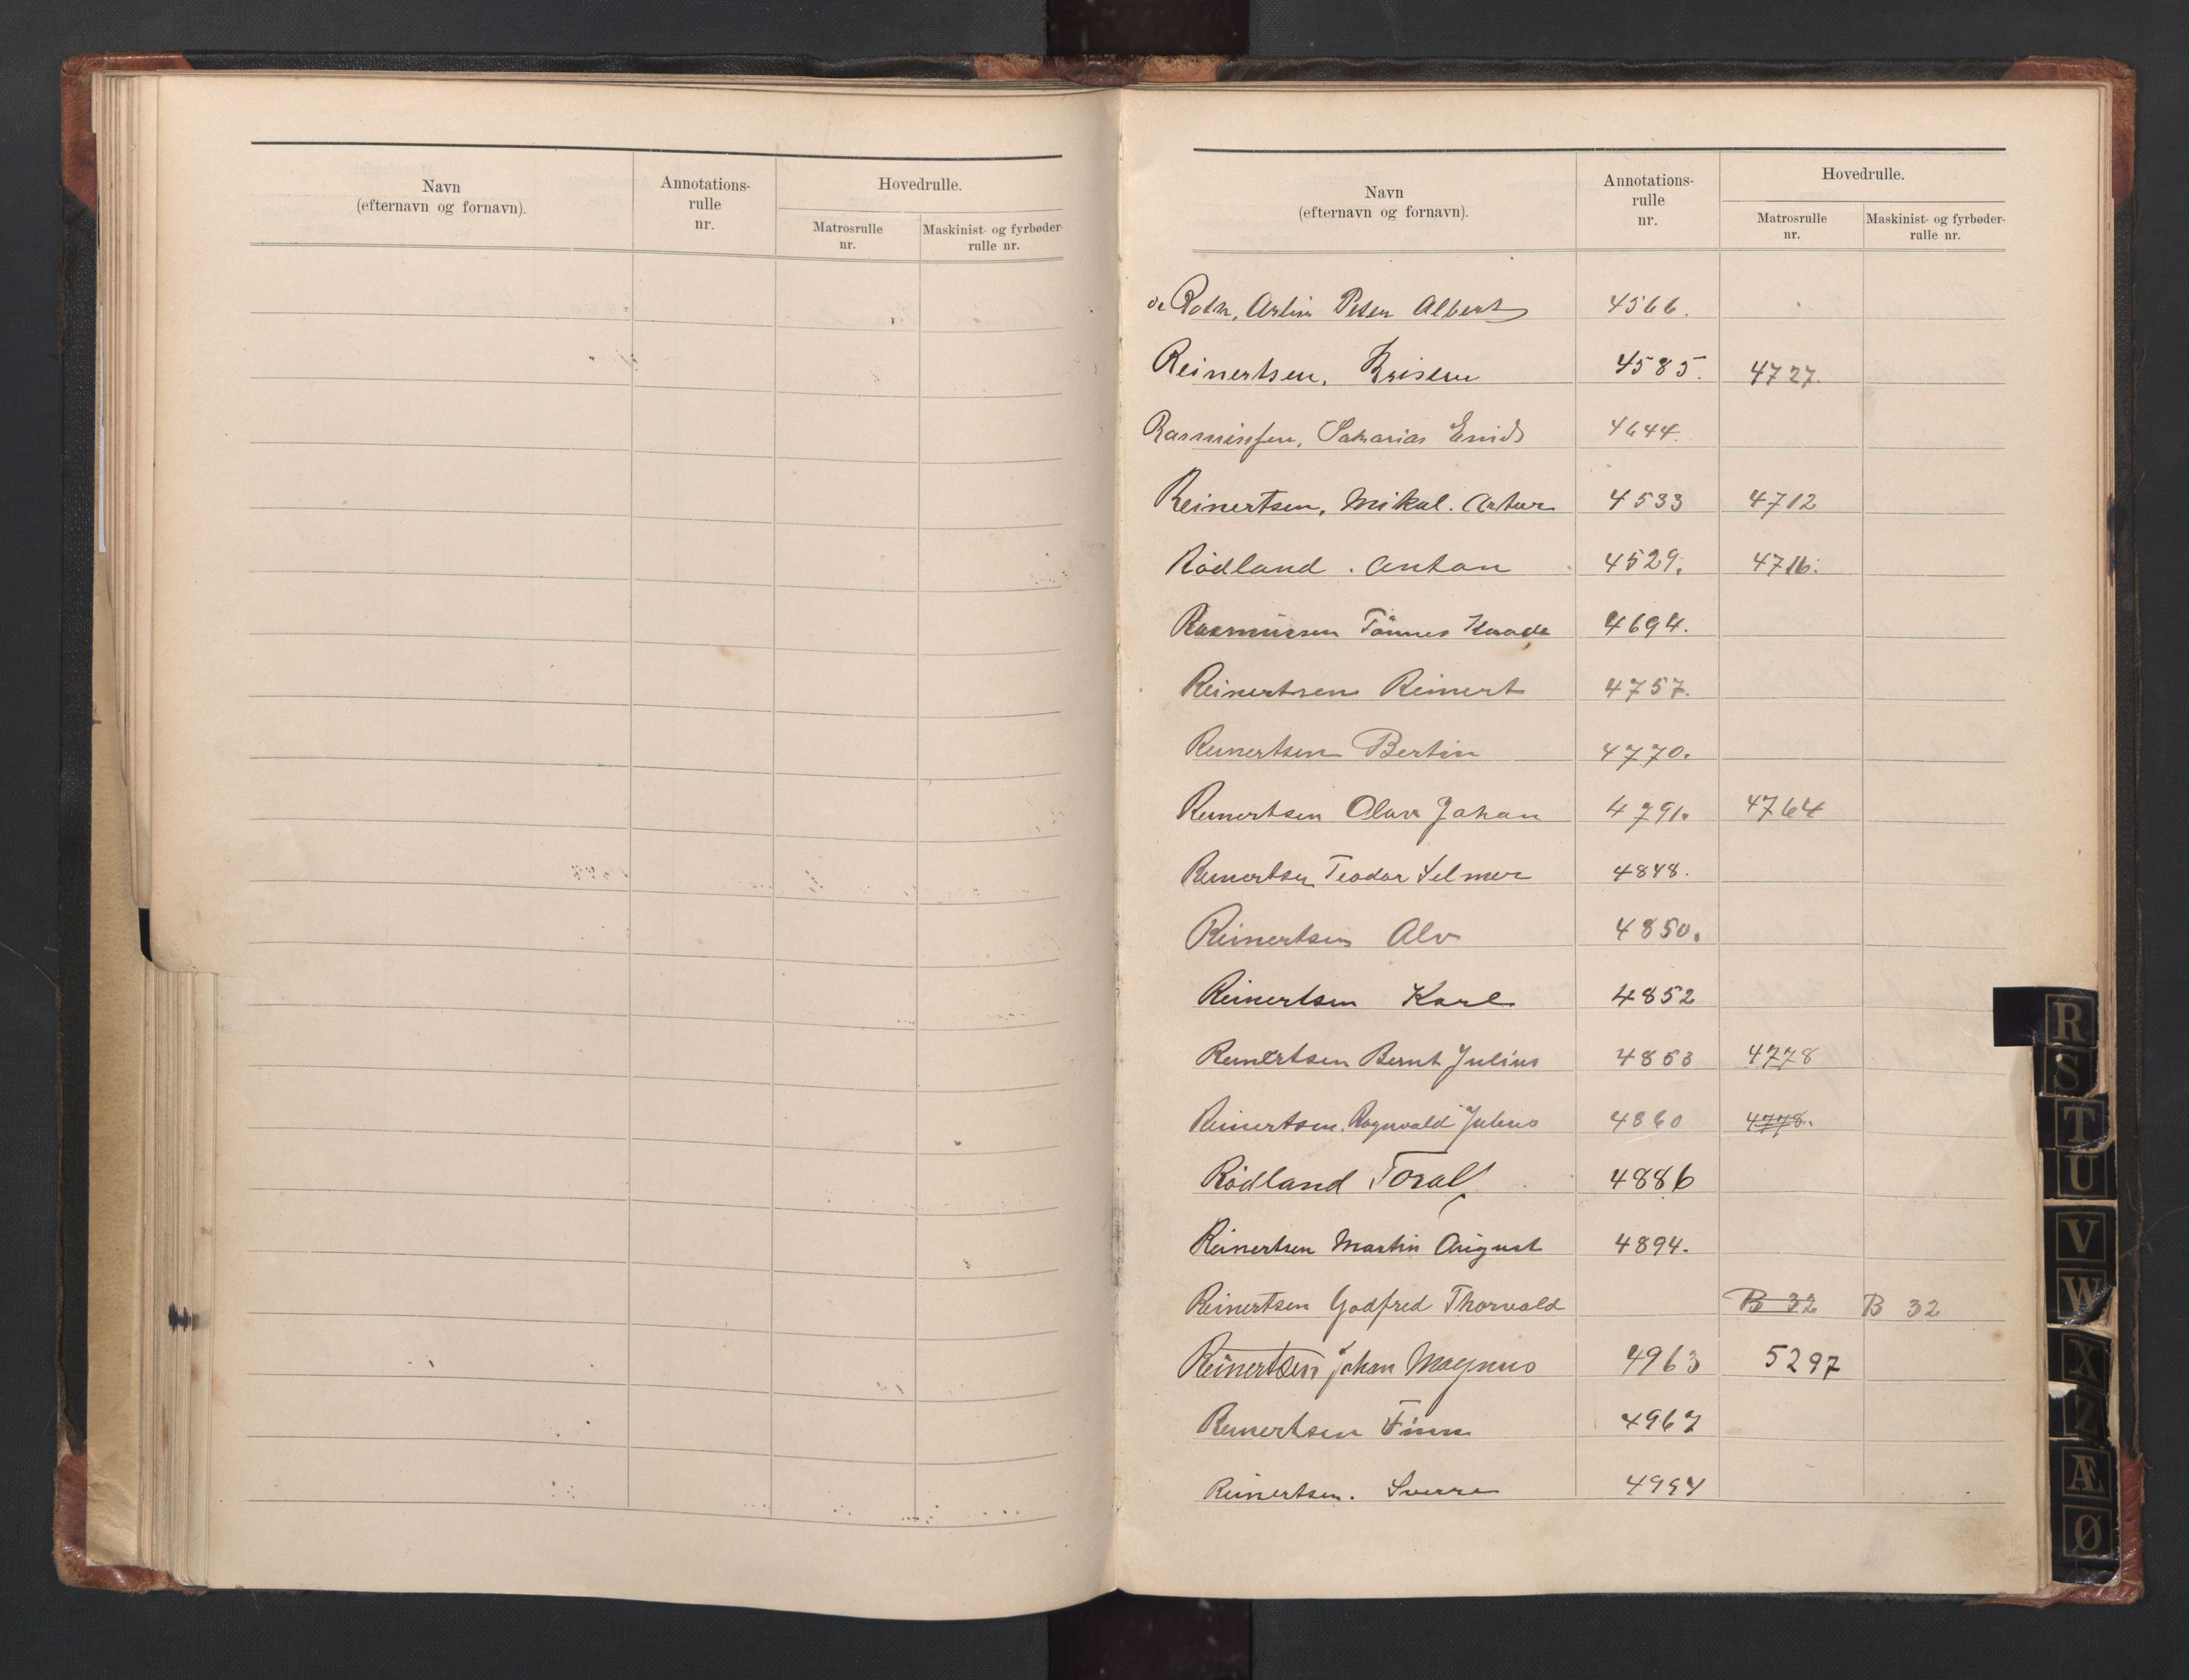 Navn
(efternavn og fornavn).
Annotations-
rulle
nr.
Hovedrulle.
Matrosrulle
nr.
Maskinist- og fyrbøder-
rulle nr.
Navn
(efternavn og fornavn).
Annotations-
rulle
nr.
Hovedrulle.
Matrosrulle
nr.
Maskinist- og fyrbøder-
rulle nr.
Peter Albert 4566.
Reinertsen, 4585. 4727.
Sakarias 4644.
Reinertsen, Mikal. Artur 4533 4712
Rödland. Anton 4529. 4716.
Rasmussen Tönnes 4694.
Reinertsen Reinert 4757.
Reinertsen Bertin 4770.
Reinertsen Olav Johan 4791. 4764
Reinertsen Teodor Selmer 4848.
Reinertsen Alv 4850.
Reinertsen Karl 4852
Reinertsen Bernt Julius 4853 4778
Reinertsen. Ragnvald Julius 4860 4778.
Rödland Toralf 4886
Reinertsen Martin August 4894.
Reinertsen Godfred Thorvald B 32 B 32
Reinertsen Johan Magnus 4963 5297
Reinertsen Finn 4967
Reinertsen. Sverre 4994
R
S
T
U
V
W
X
Z
Æ
Ø